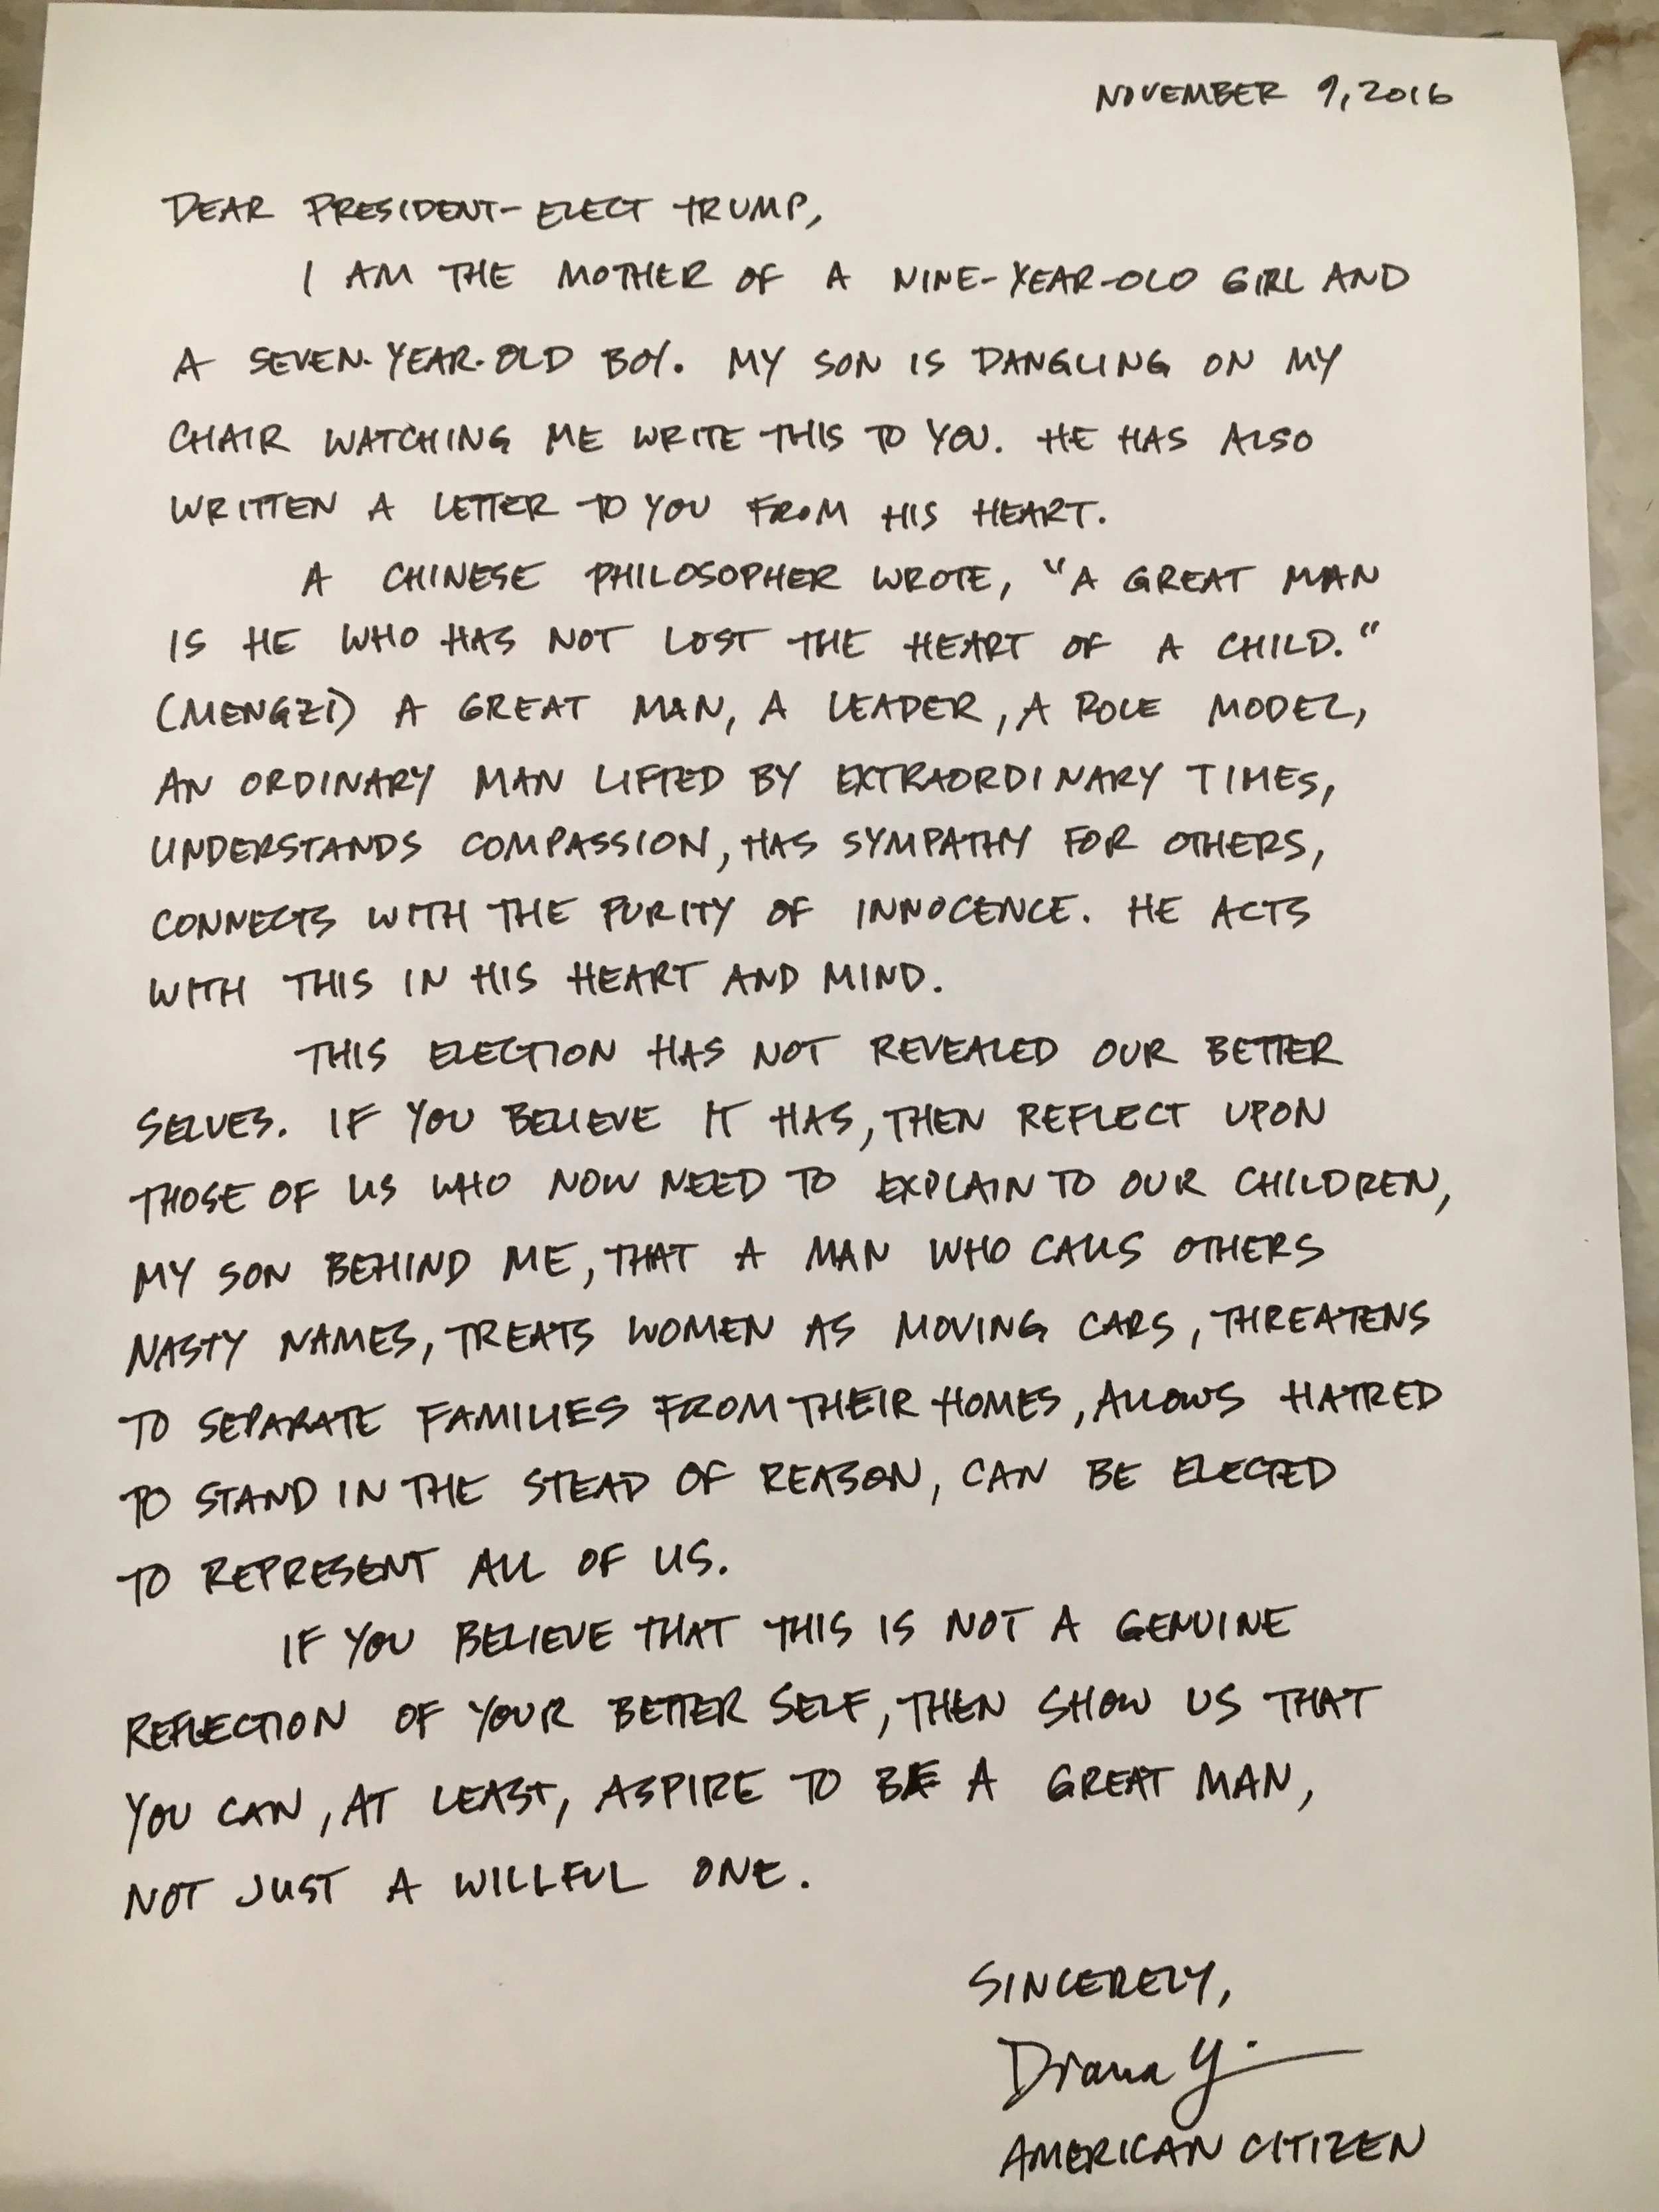 NOVEMBER 9, 2016
DEAR PRESIDENT-ELECT TRUMP,
I AM THE MOTHER OF A NINE-YEAR-OLD GIRL AND
A SEVEN-YEAR-OLD BOY. MY SON IS DANGLING ON MY
CHAIR WATCHING ME WRITE THIS TO YOU. HE HAS ALSO
WRITTEN A LETTER TO YOU FROM HIS HEART.
A CHINESE PHILOSOPHER WROTE, "A GREAT MAN
IS HE WHO HAS NOT LOST THE HEART OF A CHILD."
(MENGZI) A GREAT MAN, A LEADER, A ROLE MODEL,
AN ORDINARY MAN LIFTED BY EXTRAORDINARY TIMES,
UNDERSTANDS COMPASSION, HAS SYMPATHY FOR OTHERS,
CONNECTS WITH THE PURITY OF INNOCENCE. HE ACTS
WITH THIS IN HIS HEART AND MIND.
THIS ELECTION HAS NOT REVEALED OUR BETTER
SELVES. IF YOU BELIEVE IT HAS, THEN REFLECT UPON
THOSE OF US WHO NOW NEED TO EXPLAIN TO OUR CHILDREN,
MY SON BEHIND ME, THAT A MAN WHO CALLS OTHERS
NASTY NAMES, TREATS WOMEN AS MOVING CARS, THREATENS
TO SEPARATE FAMILIES FROM THEIR HOMES, ALLOWS HATRED
TO STAND IN THE STEAD OF REASON, CAN BE ELECTED
TO REPRESENT ALL OF US.
IF YOU BELIEVE THAT THIS IS NOT A GENUINE
REFLECTION OF YOUR BETTER SELF, THEN SHOW US THAT
YOU CAN, AT LEAST, ASPIRE TO BE A GREAT MAN,
NOT JUST A WILLFUL ONE.
SINCERELY,
Diana Y.
AMERICAN CITIZEN